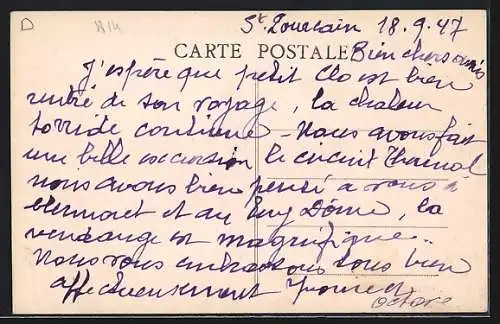 D
St Pourcain 18.9.47
CARTE POSTALE
Bien chers amis
J'espère que petit Clo est bien
rentré de son voyage, la chaleur
torride continue - Nous avons fait
une belle excursion le circuit
nous avons bien pensé a vous à
Clermont et au Puy Dôme, la
vendange est magnifique..
Nous vous embrassons tous bien
affectueusement
Octave